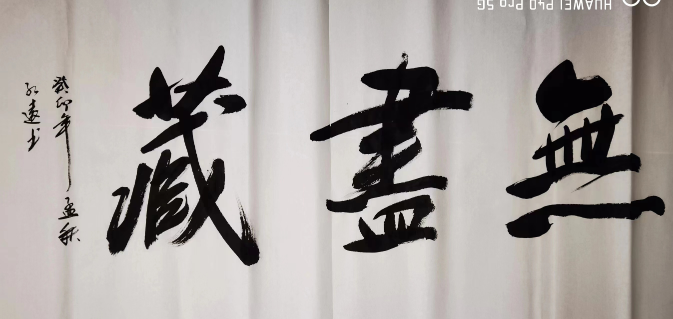 無盡藏
癸卯年孟秋
紅遠书
HUAWEI P40 Pro 5G